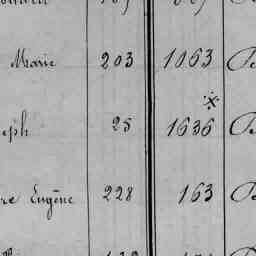 Marie 203 1063
eph 25 1636
re Eugène 228 163